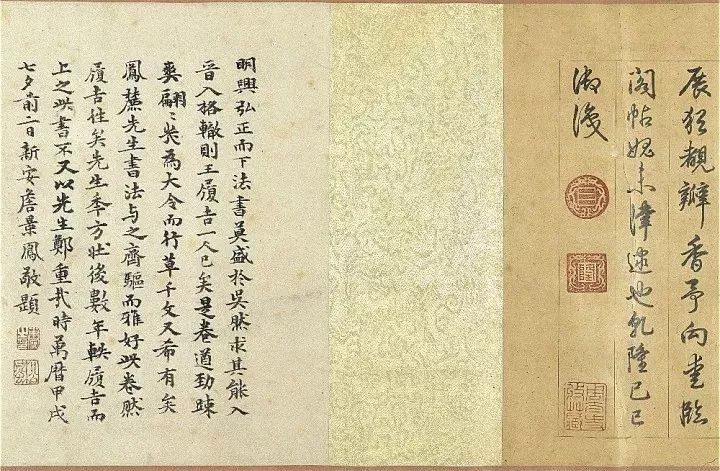 展覩瓣香予向臨
閣帖媿未津逮也乾隆己巳
御
明興弘正而下法書莫盛於吳然求其能入
晉人格轍則王履吉一人已矣是卷遒勁疎
爽翩〻矣為大令而行草千文又希有矣
鳳麓先生書法与之齊驅而雅好此卷然
履吉往矣先生秊方壯後數年軼履吉而
上之此書不又以先生鄭重哉時萬曆甲戌
七夕前二日新安詹景鳳敬題